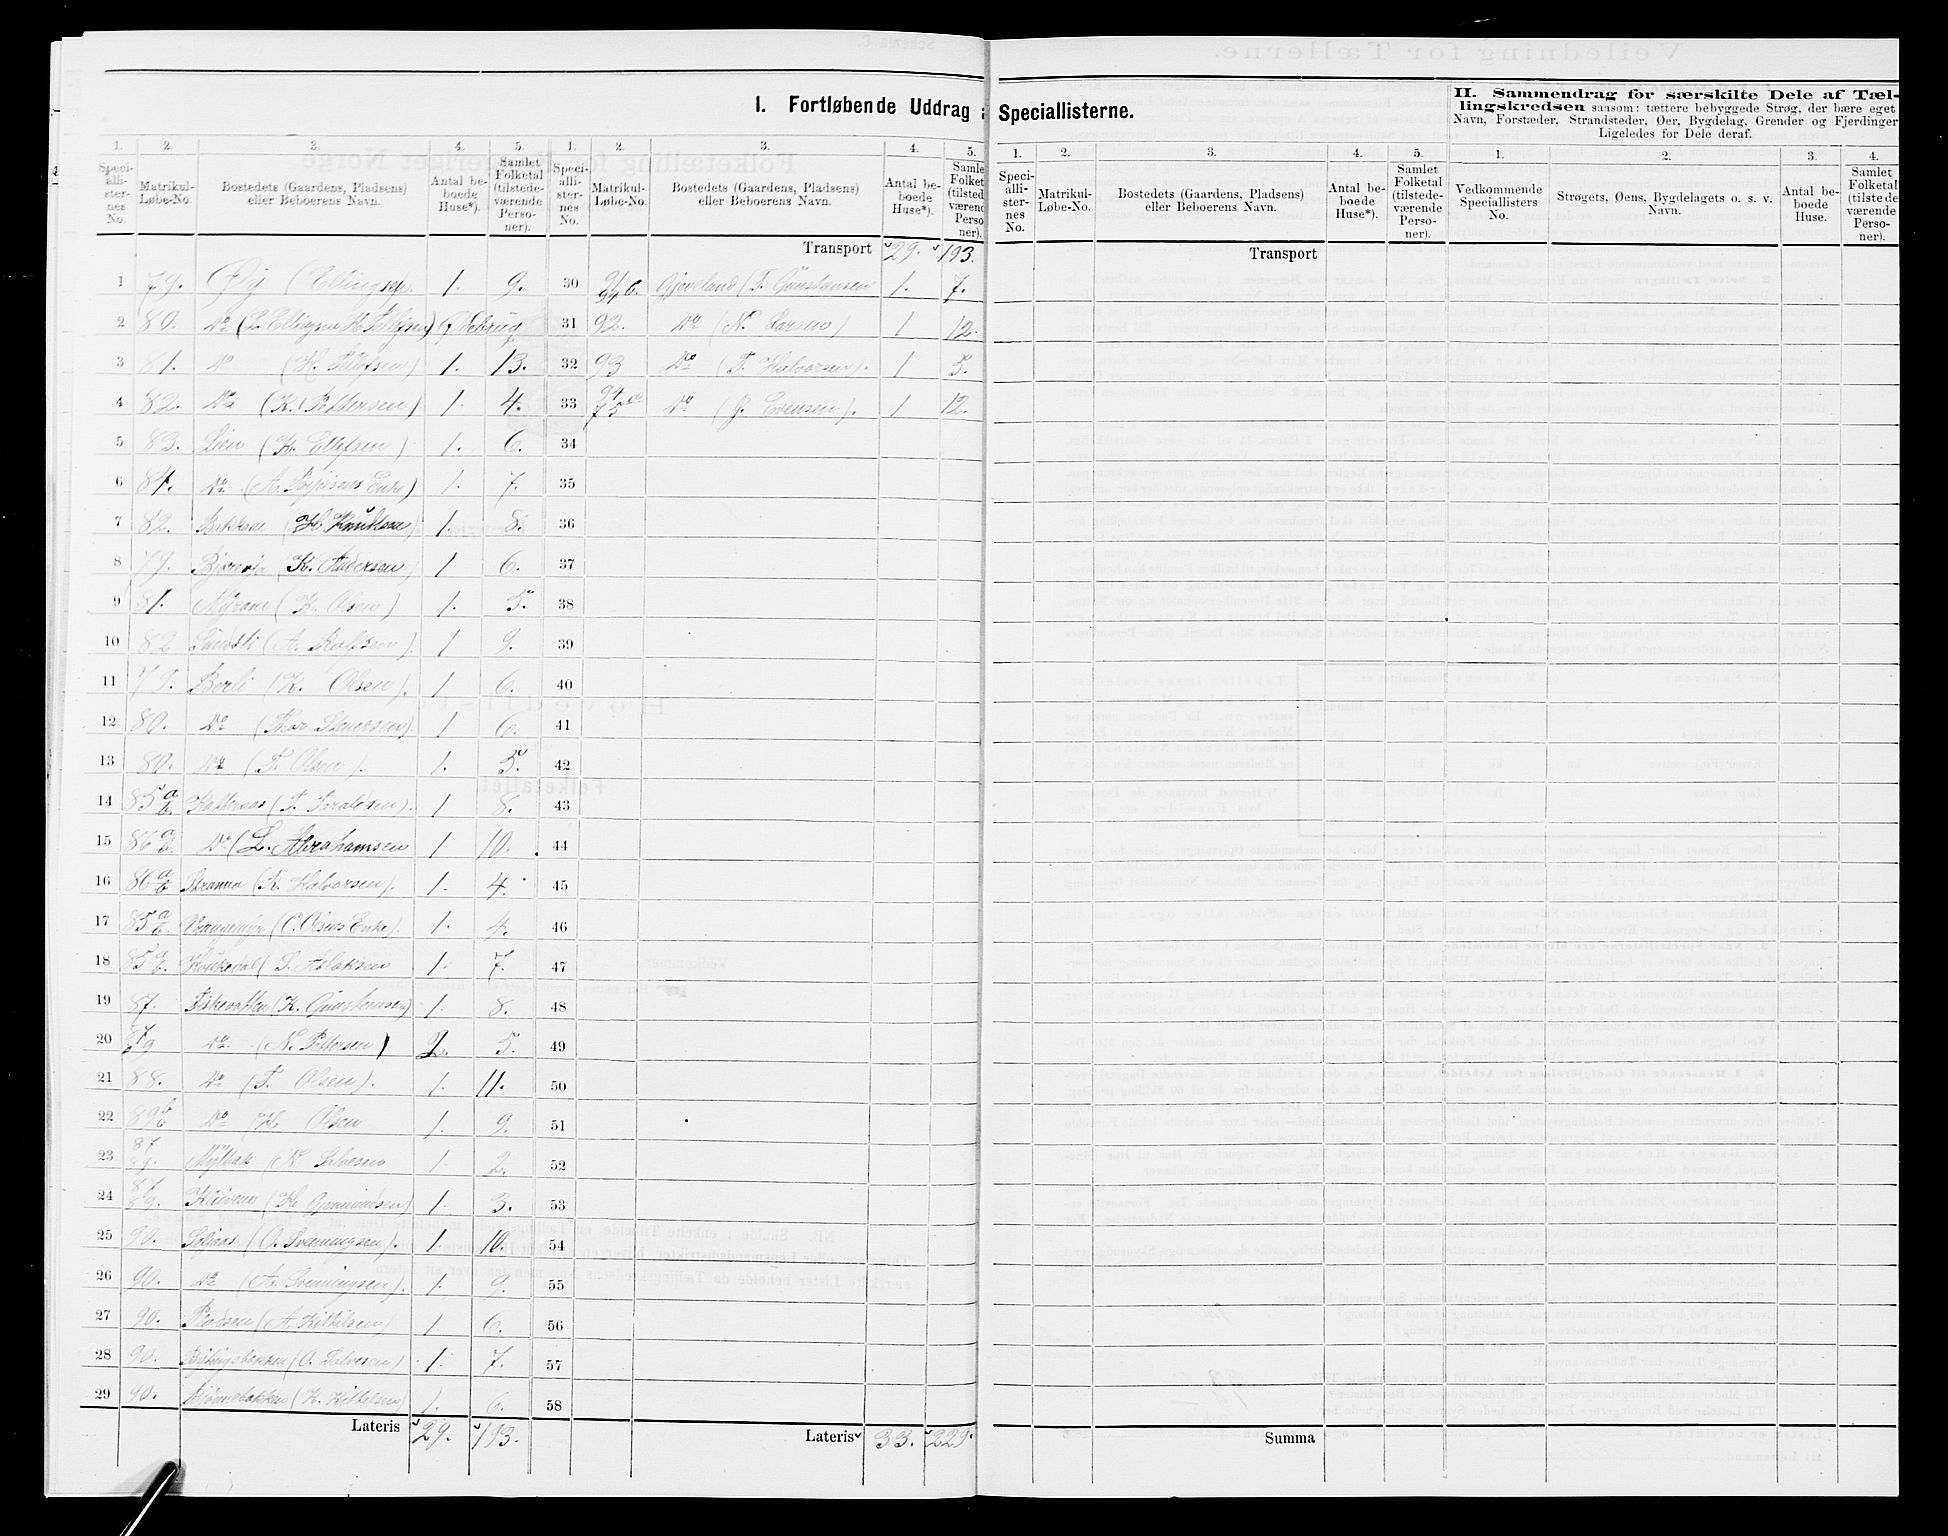 I. Fortløbende Uddrag a Speciallisterne.
II. Sammendrag for særskilte Dele af Tæl-
lingskredsen saasom: tættere bebyggede Strøg, der bære eget
Navn, Forstæder, Strandsteder, Øer, Bygdelag, Grender og Fjerdinger
Ligeledes for Dele deraf.
1. 2. 3. 4. 5. 1. 2. 3. 4. 5. 1. 2. 3. 4. 5. 1. 2. 3. 4.
Speci-alli-ster-nes No. Matrikul-Løbe-No. Bostedets (Gaardens, Pladsens) eller Beboerens Navn. Antal be-boede Huse*). Samlet Folketal (tilstede-værende Perso-ner).
Speci-alli-ster-nes No. Matrikul-Løbe-No. Bostedets (Gaardens, Pladsens) eller Beboerens Navn. Antal be-boede Huse*). Samlet Folketal (tilstede-værende Perso-ner).
Speci-alli-ster-nes No. Matrikul-Løbe-No. Bostedets (Gaardens, Pladsens) eller Beboerens Navn. Antal be-boede Huse*). Samlet Folketal (tilstede-værende Perso-ner).
Vedkommende Speciallisters No. Strøgets, Øens, Bygdelagets o. s. v. Navn. Antal be-boede Huse. Samlet Folketal (tilstede-værende Perso-ner).
Transport 29. 193. Transport
1 79. Øy (Ellingsen 1. 9. 30 Gjøveland (T. Gunstensen 1. 7.
2 80. Do (L. Ellingsen H. Tellefsen) (Ødebrug 31 92. Do (N. Larsen) 1 12.
3 81. Do (H. Tellefsen) 1. 13. 32 93 Do (T. Halvorsen). 1 5.
4 82. Do (K. Pettersen) 1. 4. 33 94 75a Do (J. Evensen). 1 12.
5 83. Lien (K. Ellefsen) 1. 6. 34
6 84. Do (A. Enke) 1. 7. 35
7 82. Bakken (H. Knudsen) 1. 8. 36
8 79. (K. Andersen) 1 6. 37
9 81. Myrane (K. Olsen) 1. 5. 38
10 82 Sundsli (A. Rolfsen). 1 9. 39
11 79. Berli (K. Olsen). 1 6. 40
12 80. Do (Thor Steversen) 1 6. 41
13 80. Do (T. Olsen). 1. 5. 42
14 85 a b. Katteraas (T. Taraldsen). 1 8. 43
15 86 a b. Do (L. Abrahamsen 1 10. 44
16 86 a b Stranna (K. Halvorsen). 1. 4. 45
17 85 a b. (O. Olsens Enke). 1. 4. 46
18 85 a b. Houkedal (S. Aslaksen 1. 7. 47
19 87. Fiskevatten (K. Gunstensen) 1. 8. 48
20 87 89 Do (N. Pettersen) 2. 5. 49
21 88. Do (T. Olsen). 1. 11. 50
22 89 b Do (H Olsen 1. 9. 51
23 87 89. Mylbak (N Salvesen 1. 2. 52
24 87 89. Kleivene (H. Gunmundsen) 1. 3. 53
25 90. Soliaas (O. Svenningsen). 1. 10. 54
26 90. Do (A. Svenningsen). 1. 9. 55
27 90. Pladsen (A. Kittilsen) 1. 6. 56
28 90. (O. Salvesen) 1. 7. 57
29 90. Bjønnebakken (K. Kittelsen) 1. 6. 58
Lateris 29. 193. Lateris 33. 229. Summa